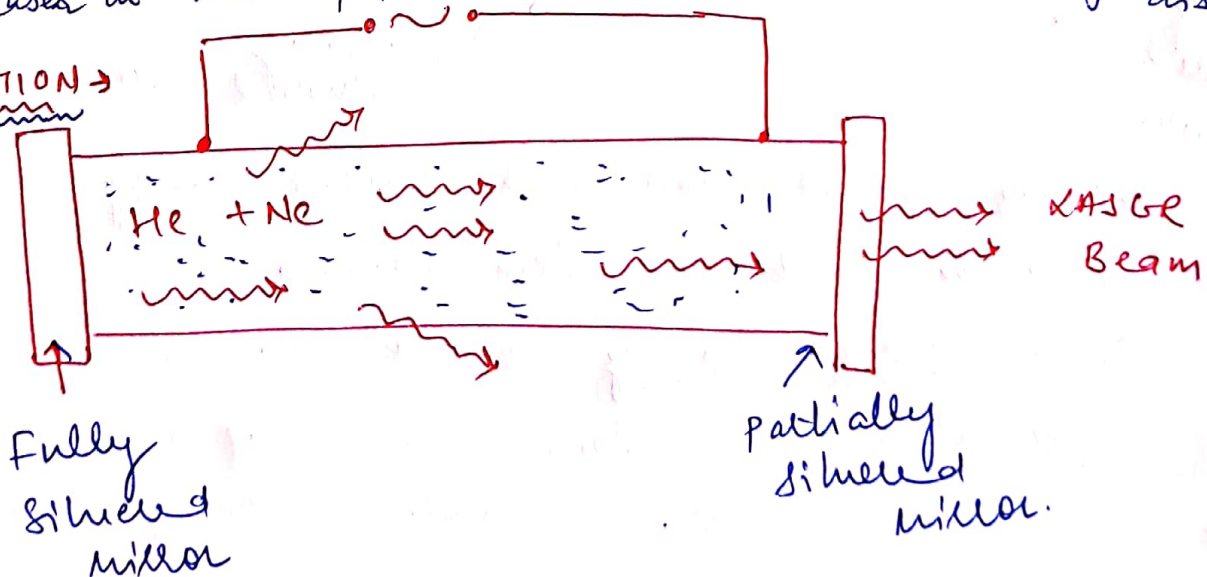 TION →
He + Ne
LASER
Beam
Fully
Silvered
mirror
Partially
Silvered
mirror.